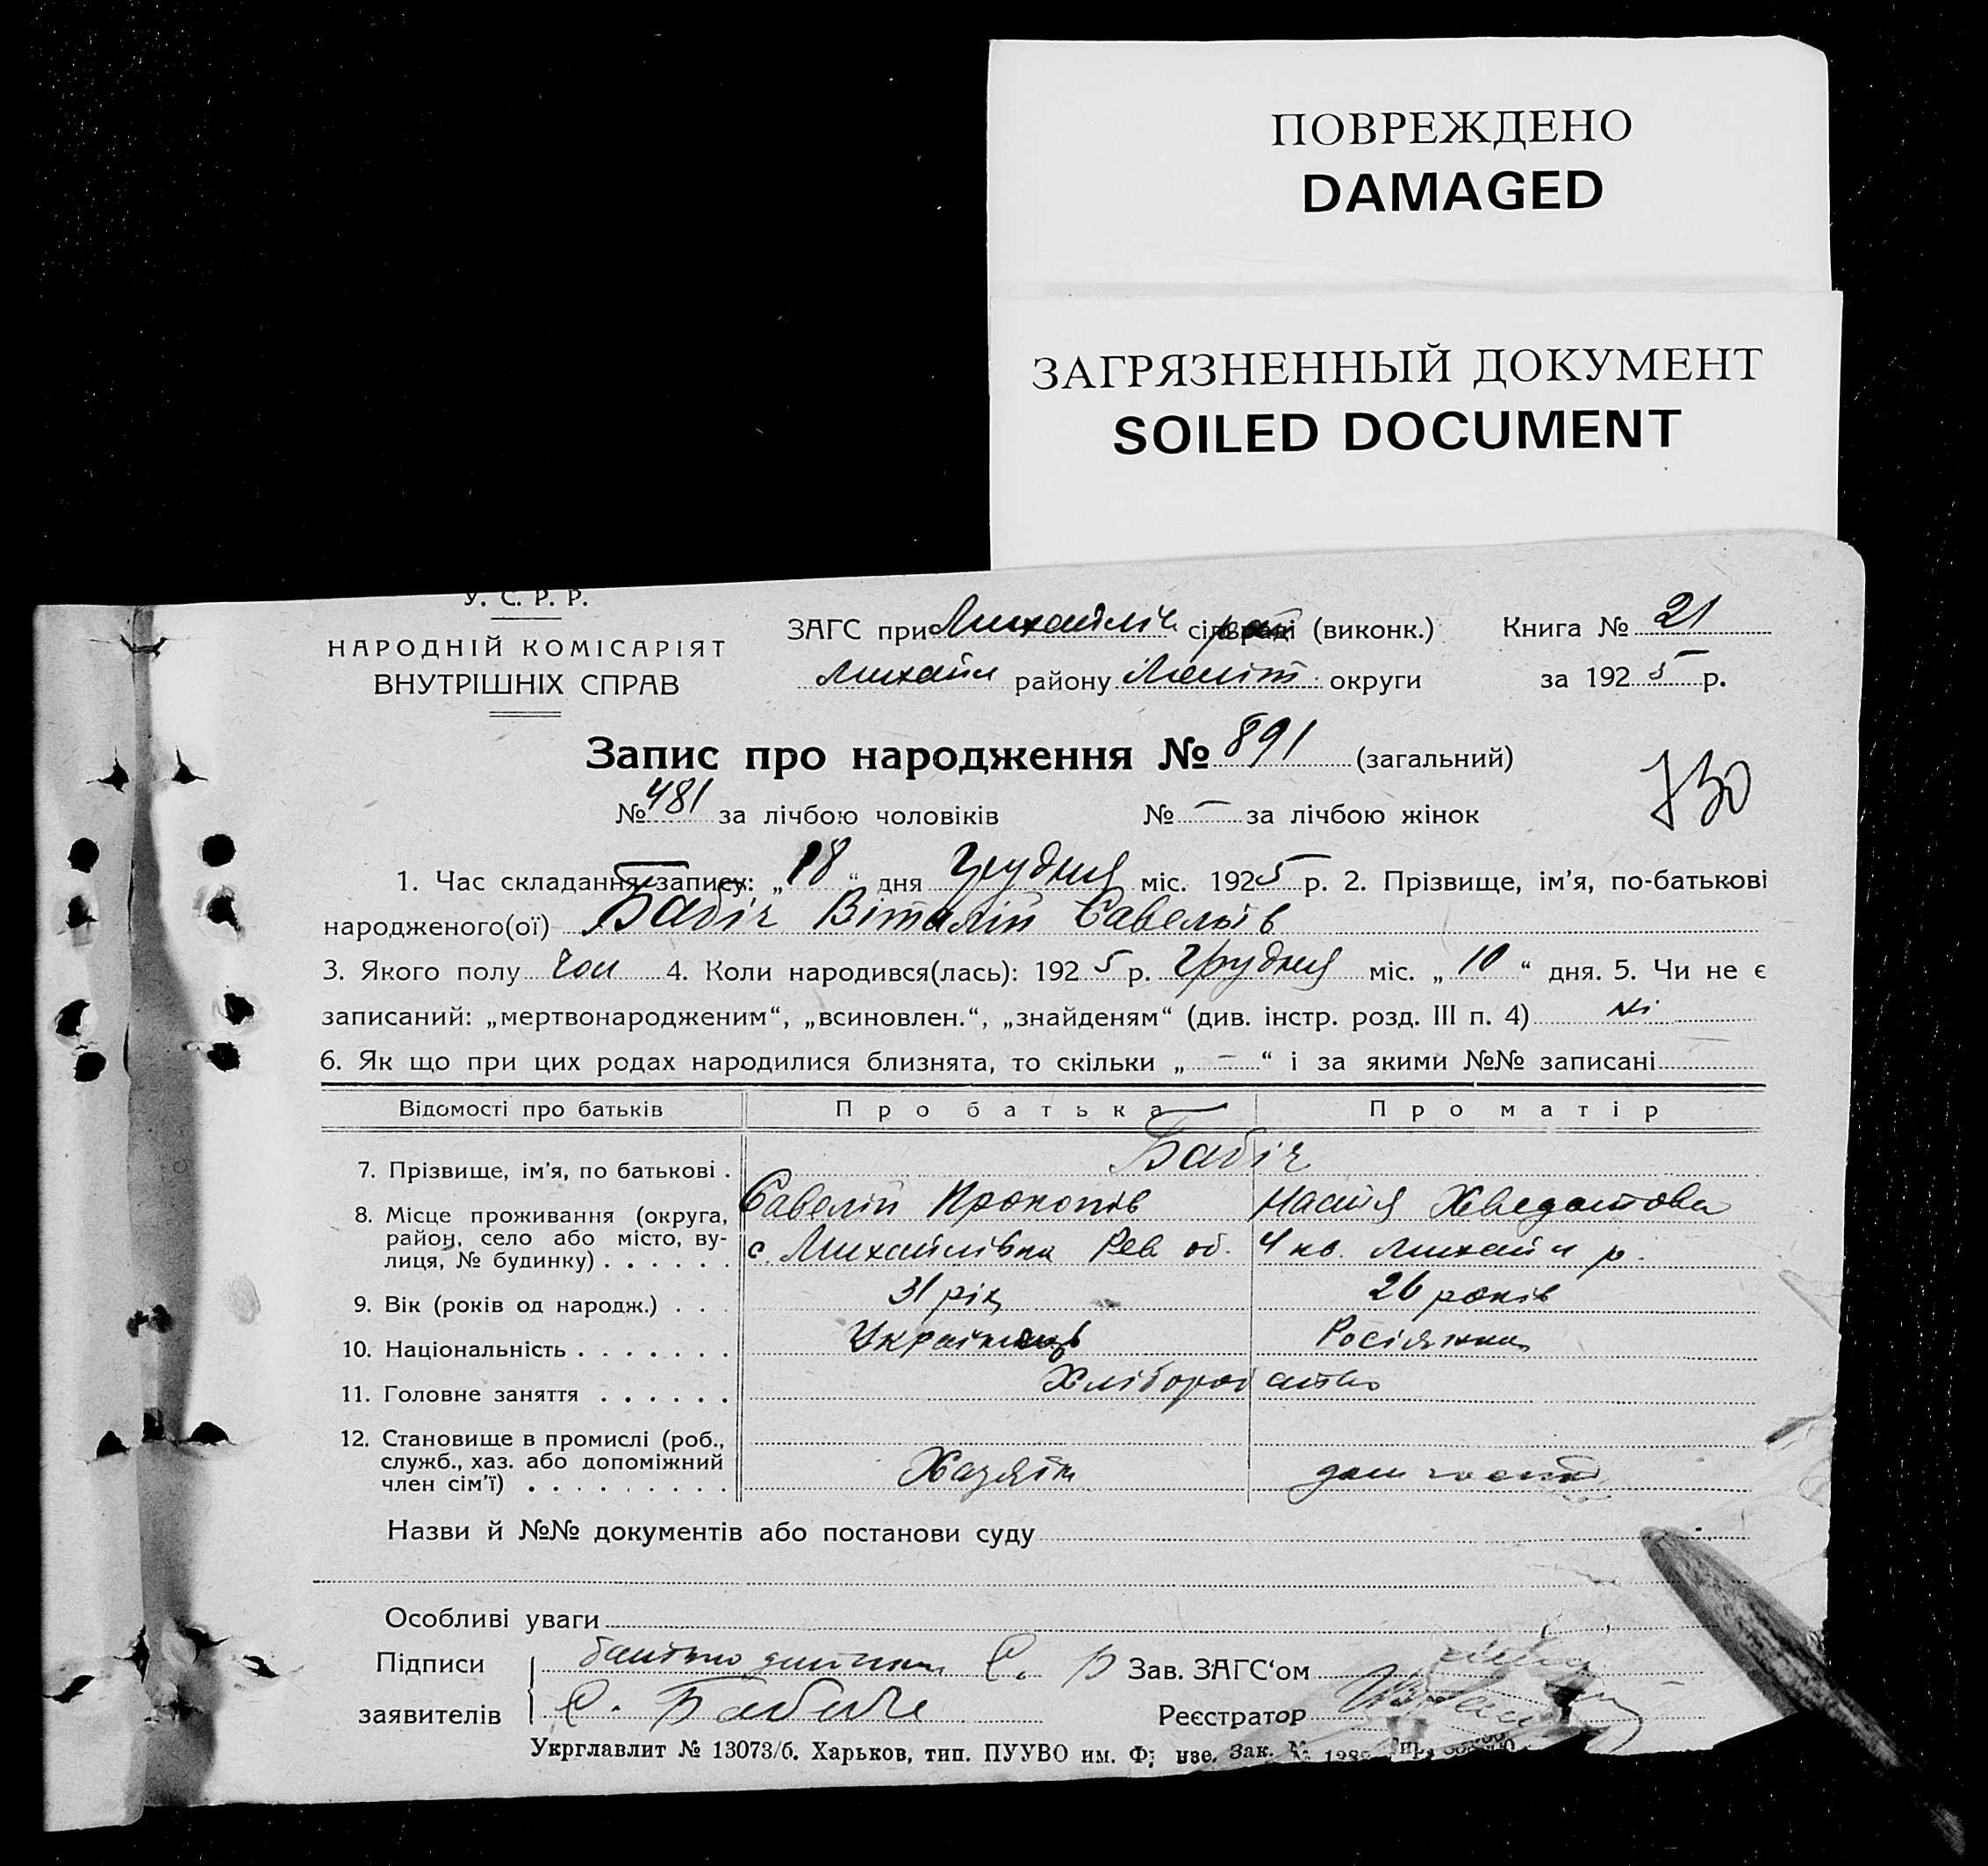 ПОВРЕЖДЕНО
DAMAGED
ЗАГРЯЗНЕННЫЙ ДОКУМЕНТ
SOILED DOCUMENT
У. С. Р. Р.
НАРОДНІЙ КОМІСАРІЯТ
ВНУТРІШНІХ СПРАВ
ЗАГС при Михайлів сільраді (виконк.) Книга № 21
Михайл району Меліт. округи за 1925 р.
Запис про народження № 891 (загальний)
730
№ 481 за лічбою чоловіків № — за лічбою жінок
1. Час складання запису: „18“ дня Грудня міс. 1925 р. 2. Прізвище, ім'я, по-батькові
народженого(ої) Бабіч Віталій Савельїв
3. Якого полу чол 4. Коли народився(лась): 1925 р. Грудня міс. „10“ дня. 5. Чи не є
записаний: „мертвонародженим“, „всиновлен.“, „знайденям“ (див. інстр. розд. III п. 4) ні
6. Як що при цих родах народилися близнята, то скільки „—“ і за якими №№ записані
Відомості про батьків Про батька Про матір
7. Прізвище, ім'я, по батькові . Бабіч
Савелій Прокопів Настя Хведотова
8. Місце проживання (округа, район, село або місто, вулиця, № будинку) . . . . . . с. Михайлівка Рев. об. 4 кв. Михайл р.
9. Вік (років од народж.) . . . 31 рік 26 років
10. Національність . . . . . . . Українець Росіянка
11. Головне заняття . . . . . . Хліборобство
12. Становище в промислі (роб., служб., хаз. або допоміжний член сім'ї) . . . . . . . . . Хазяїн
Назви й №№ документів або постанови суду
Особливі уваги
Підписи батько дитини С. Б Зав. ЗАГС'ом
заявителів С. Бабиче Реєстратор
Укрглавлит № 13073/б. Харьков, тип. ПУУВО им. Ф Зак.